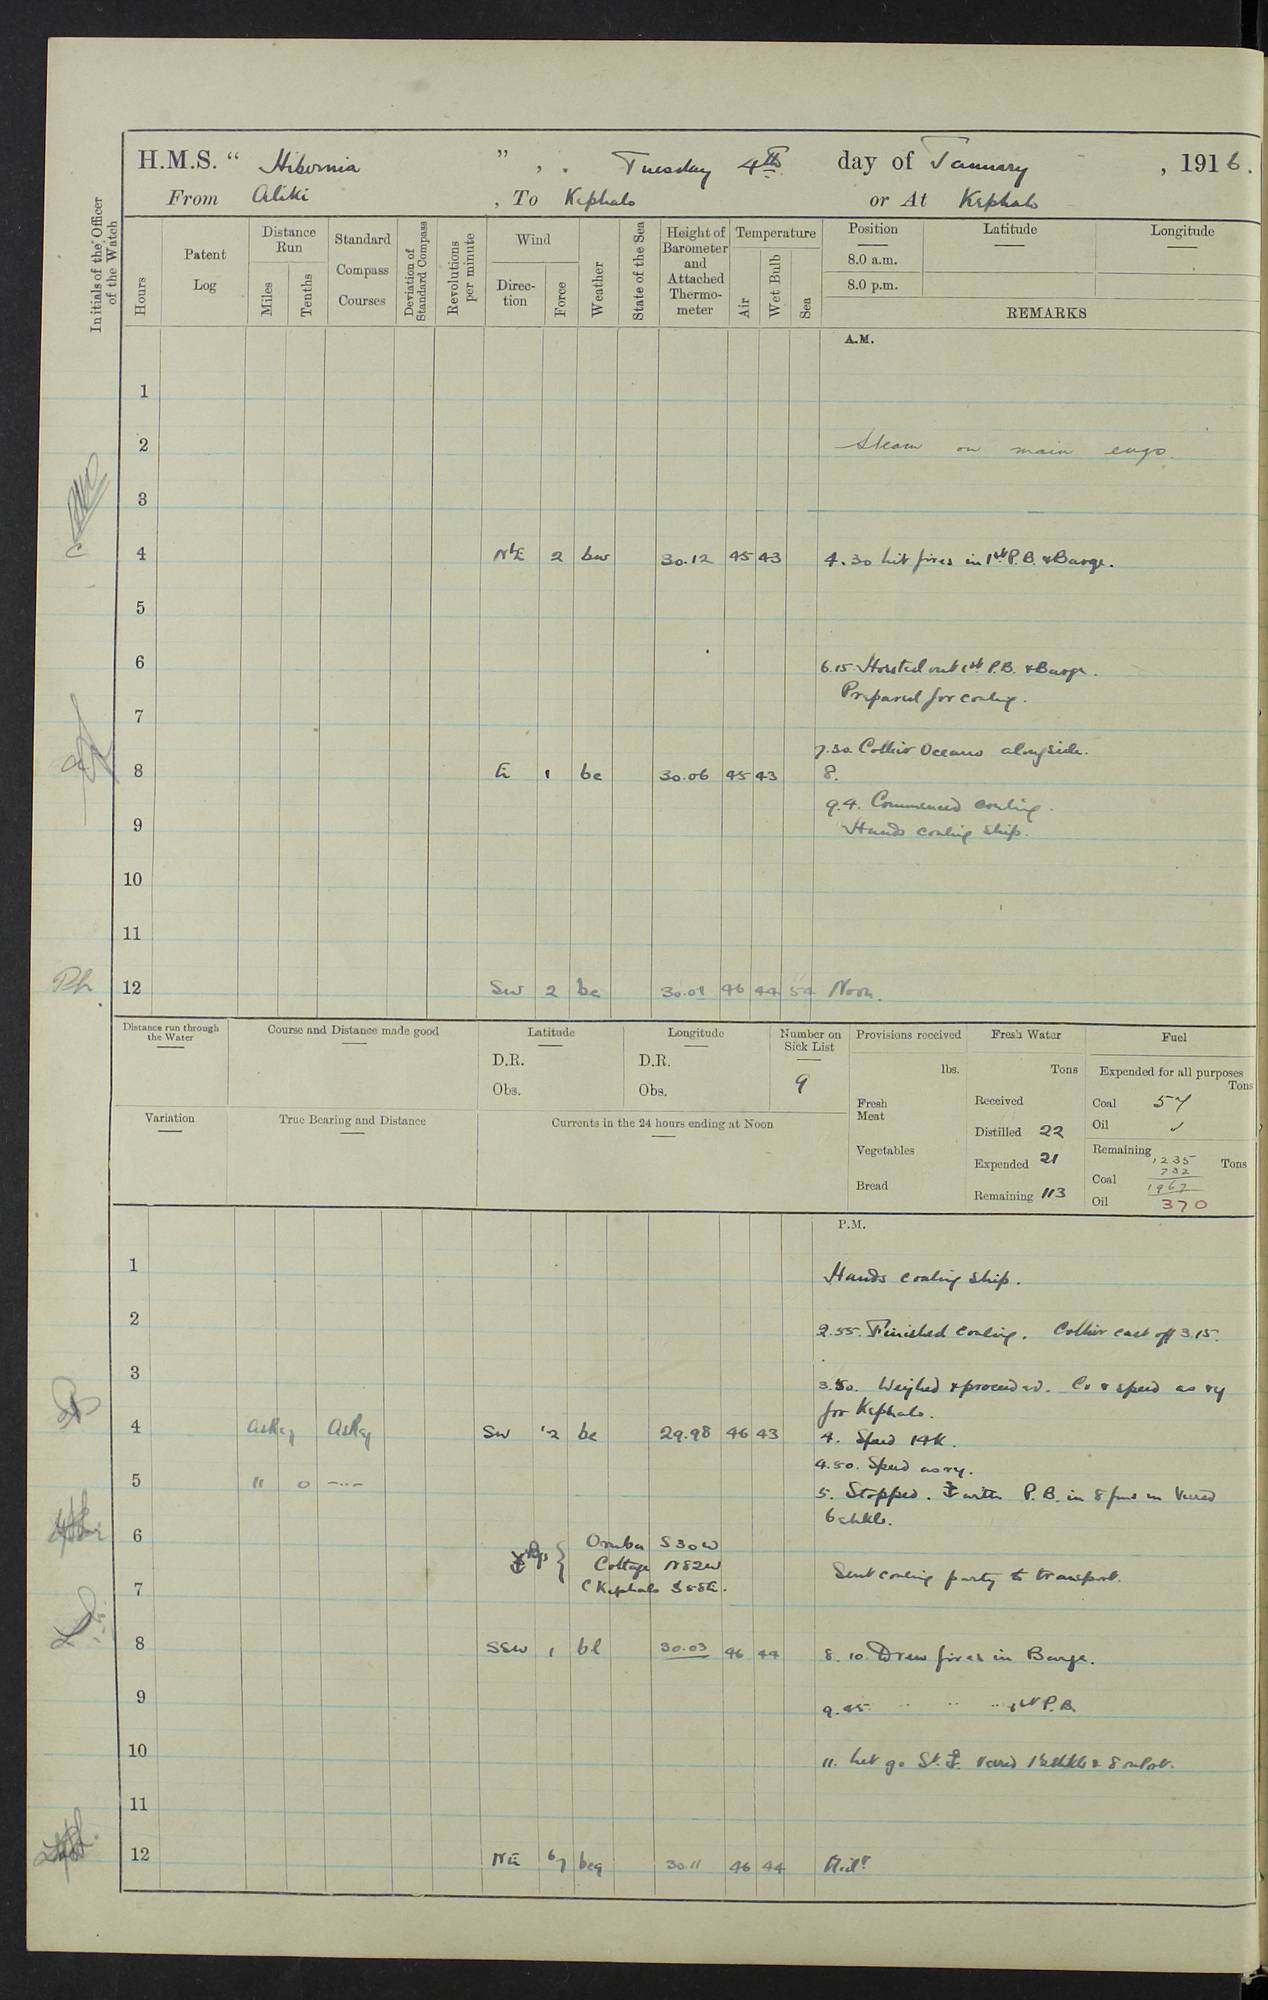 H.M.S. “ Hibernia ” , . Tuesday 4th day of January , 1916.
From Aliki , To Kephalo or At Kephalo
Initials of the Officer of the Watch
Hours
Patent Log
Distance Run
Miles
Tenths
Standard Compass Courses
Deviation of Standard Compass
Revolutions per minute
Wind
Direction
Force
Weather
State of the Sea
Height of Barometer and Attached Thermometer
Temperature
Air
Wet Bulb
Sea
Position Latitude Longitude
8.0 a.m.
8.0 p.m.
REMARKS
A.M.
1
2 Steam on main engs.
3
4 NbE 2 bw 30.12 45 43 4.30 Lit fires in 1st P.B. & Barge.
5
6 6.15 Hoisted out 1st P.B. & Barge.
Prepared for coaling.
7
7.30. Collier Oceano alongside.
8 E 1 bc 30.06 45 43 8.
9.4. Commenced coaling.
9 Hands coaling ship.
10
11
12 SW 2 bc 30.01 46 44 54 Noon.
Distance run through the Water
Course and Distance made good
Latitude
D.R.
Obs.
Longitude
D.R.
Obs.
Number on Sick List
9
Provisions received
lbs.
Fresh Meat
Vegetables
Bread
Fresh Water
Tons
Received
Distilled 22
Expended 21
Remaining 113
Fuel
Expended for all purposes
Tons
Coal 57
Oil
Remaining Tons
1235
732
Coal 1967
Oil 370
Variation
True Bearing and Distance
Currents in the 24 hours ending at Noon
P.M.
1 Hands coaling ship.
2 2.55. Finished coaling. Collier cast off 3.15.
3
3.50. Weighed & proceeded. Co & speed as ry
for Kephalo.
4 As Req As Req SW 2 bc 29.98 46 43 4. Speed 14K.
4.50. Speed as ry.
5 11 0 5. Stopped. ⚓ with P.B. in 8 fms Veered
6 shkls.
6 ⚓ Bgs { Omba S30W
Cottage N82W
C Kephalo S58E.
Sent coaling party to transport.
7
8 SSW 1 bc 30.03 46 44 8.10. Drew fires in Barge.
9 9.45 " " " 1st P.B.
10 11. Let go St. ⚓. veered
11
12 NE 6/7 bcq 30.11 46 44 Midt